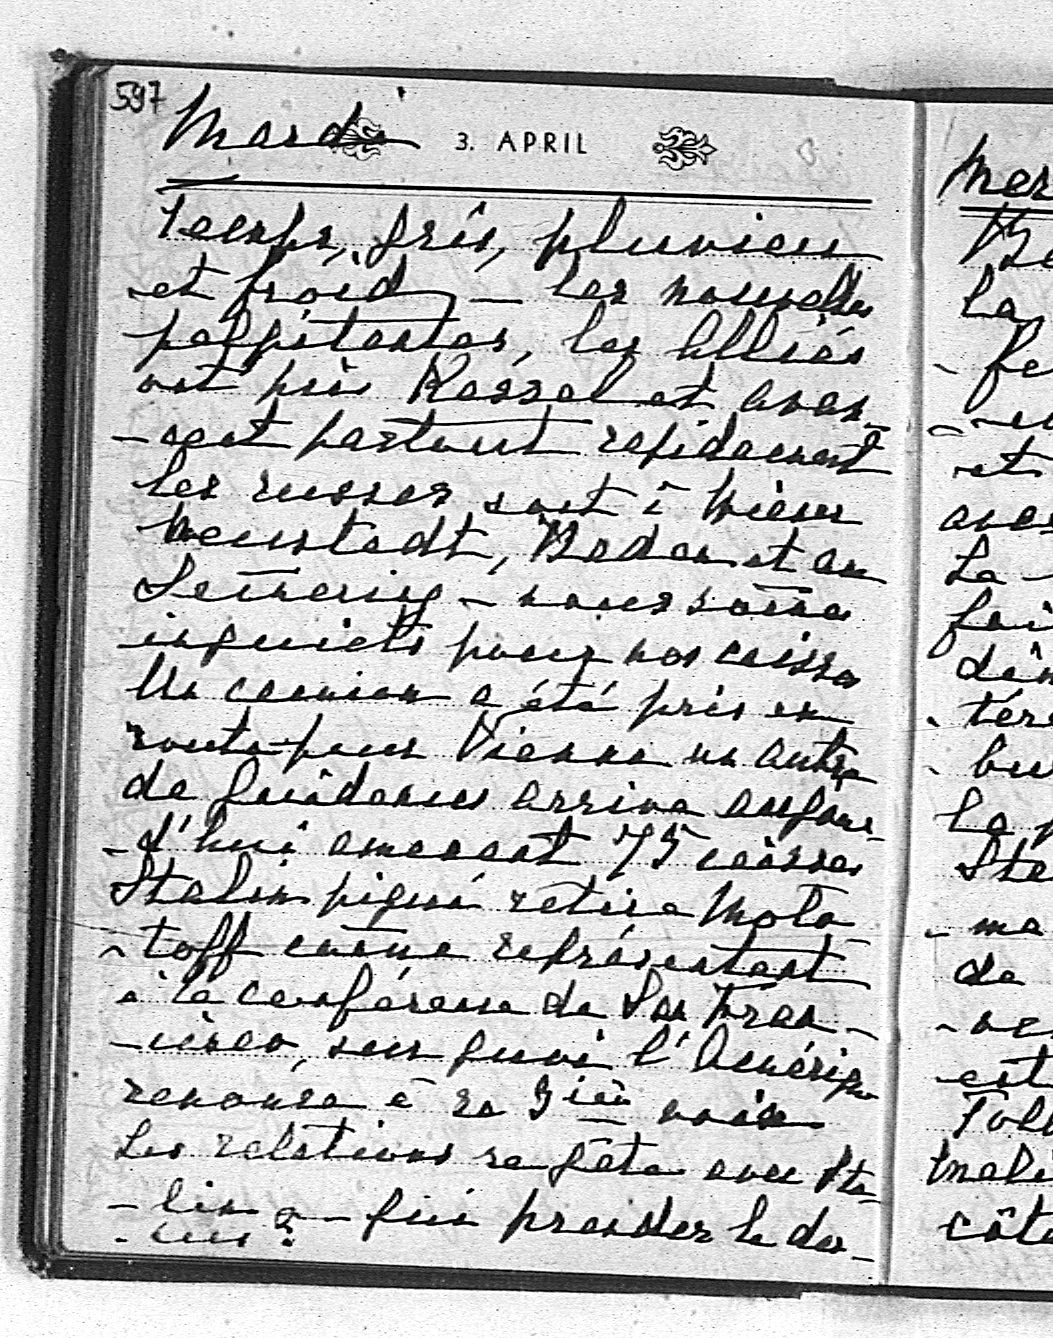 597
Mardi 3. APRIL
Temps, gris, pluvieu
et froid – les nouvelles
palpitantes, les Alliés
ont pris Kassel et avan-
-cent partout rapidement
les russes sont à Wiener
Neustadt, Baden et au
Semering – nous some
inquiets pour nos caisses
Un camion a été pris en
route pour Vienne un autre
de arrive aujour-
-d'hui amenant 75 caisses
Stalin piqué retire Molo-
-toff come représentant
à la conférence de San Fran-
-cisco, sur quoi l'Amérique
renonce à sa 3ième voix
Les relations se gate avec Sta-
-lin – qui prendra le des-
-sus ?
Mer
La
et
avec
La
La
Ste
ma
de
est
côté